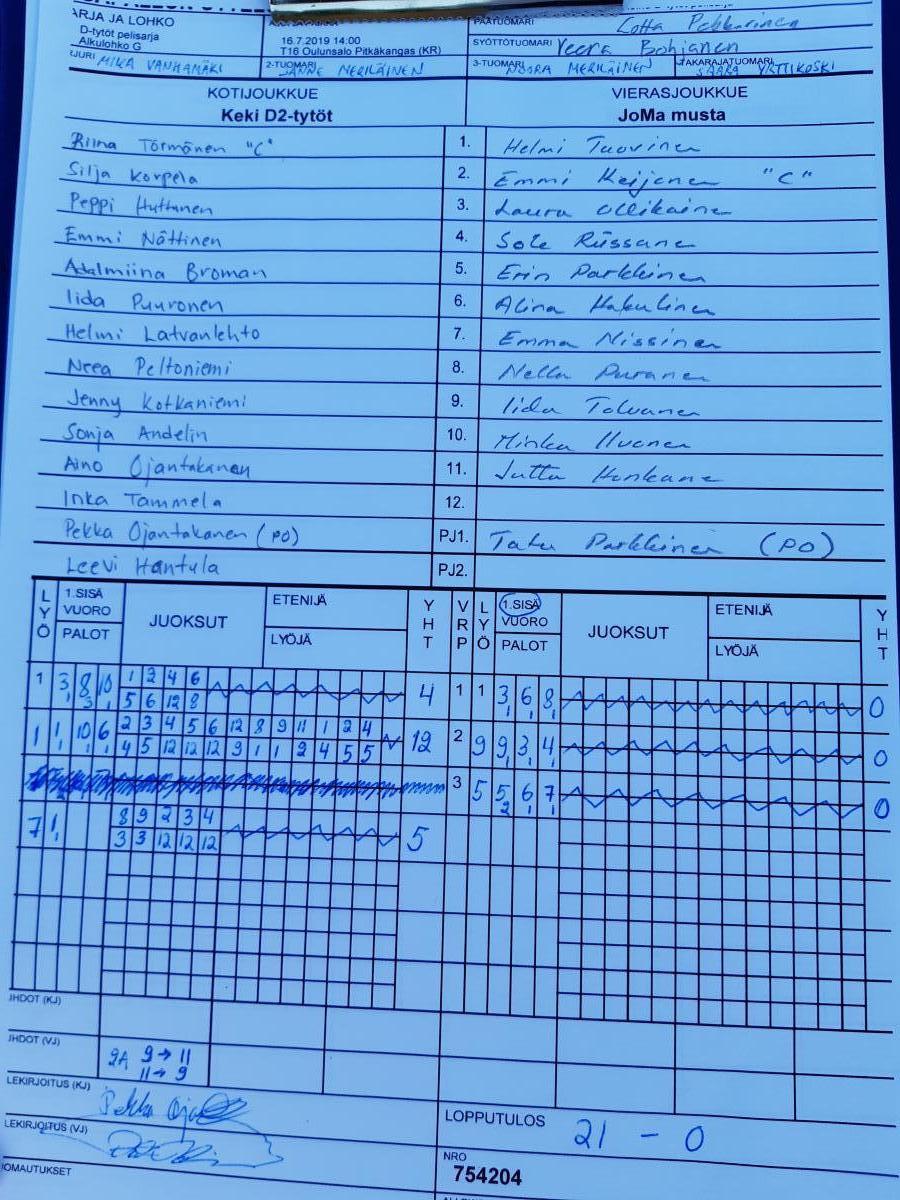 ARJA JA LOHKO
D-tytöt pelisarja
Alkulohko G
16.7.2019 14:00
T16 Oulunsalo Pitkäkangas (KR)
PÄÄTUOMARI Lotta Pekkarinen
SYÖTTÖTUOMARI Veera Bohjanen
JURI MIKA VANHAMÄKI 2-TUOMARI SANNE MERILÄINEN 3-TUOMARI NOORA MERILÄINEN TAKARAJATUOMARI SAARA YRTTIKOSKI
KOTIJOUKKUE VIERASJOUKKUE
Keki D2-tytöt JoMa musta
Riina Törmänen "C" 1. Helmi Tuovinen
Silja Korpela 2. Emmi Keijonen "C"
Peppi Huttunen 3. Laura Ollikaine
Emmi Nättinen 4. Sole Riissane
Adalmiina Broman 5. Erin Parkkinen
Iida Puuronen 6. Alina Hakulinen
Helmi Latvanlehto 7. Emma Nissinen
Neea Peltoniemi 8. Nella Puranen
Jenny Kotkaniemi 9. Iida Tolvanen
Sonja Andelin 10. Minka Iivonen
Aino Ojantakanen 11. Jutta Honkane
Inka Tammela 12.
Pekka Ojantakanen (PO) PJ1. Tatu Parkkinen (PO)
Leevi Hantula PJ2.
LYÖ 1.SISÄ VUORO PALOT JUOKSUT ETENIJÄ LYÖJÄ YHT VRP LYÖ 1.SISÄ VUORO PALOT JUOKSUT ETENIJÄ LYÖJÄ YHT
1 3 8 10 1 2 4 6 4 1 1 3 6 8 0
1 3 1 5 6 12 8 1 1 1
1 1 10 6 2 3 4 5 6 12 8 9 11 1 2 4 12 2 9 9 3 4 0
1 1 1 4 5 12 12 12 9 1 1 2 4 5 5 1 1 1
3 5 5 6 7 0
2 1 1
7 1 8 9 2 3 4 5
1 3 3 12 12 12
JHDOT (KJ)
JHDOT (VJ) 2A 9→11
11→9
LEKIRJOITUS (KJ) Pekka Oja
LEKIRJOITUS (VJ)
LOPPUTULOS 21 - 0
OMAUTUKSET
NRO
754204